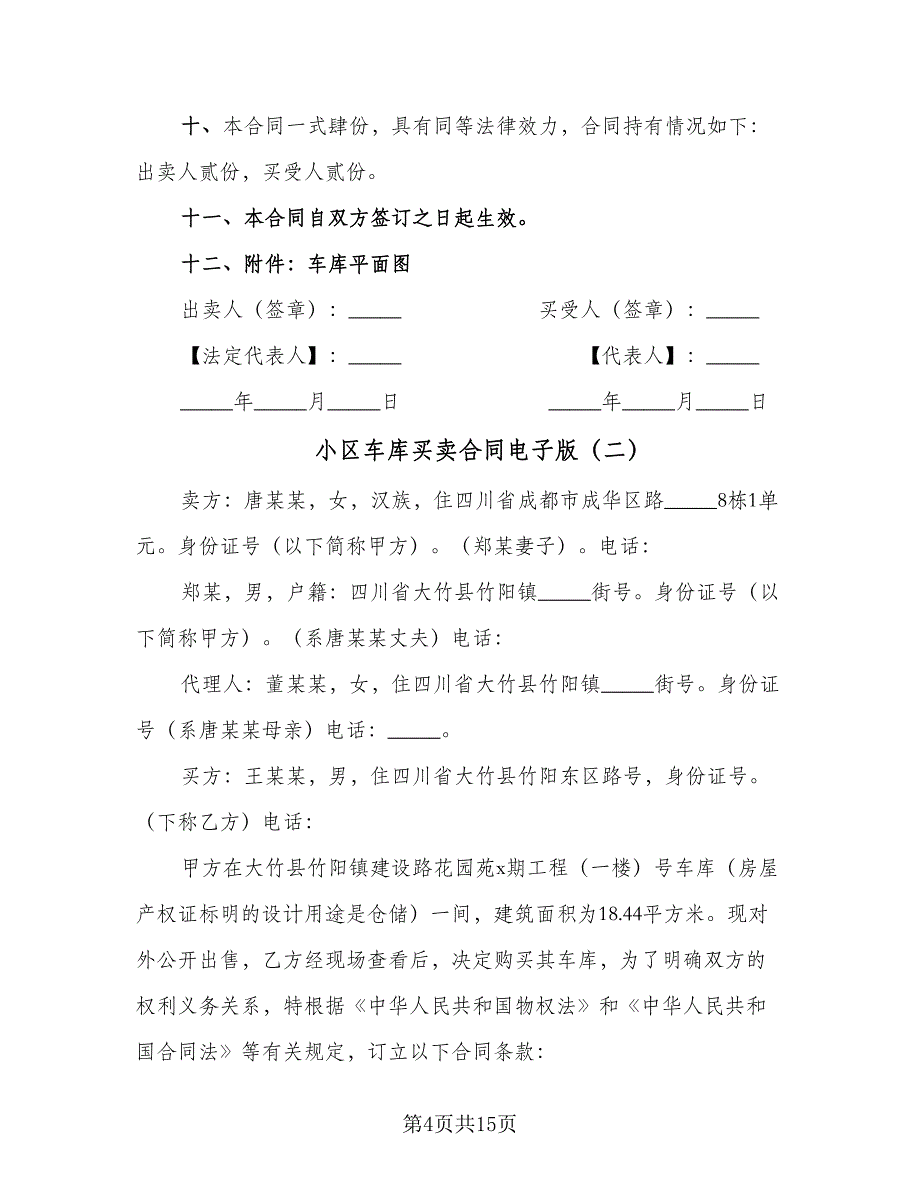 十、本合同一式肆份，具有同等法律效力，合同持有情况如下：
出卖人贰份，买受人贰份。
十一、本合同自双方签订之日起生效。
十二、附件：车库平面图
出卖人（签章）：_____ 买受人（签章）：_____
【法定代表人】：_____ 【代表人】：_____
_____年_____月_____日 _____年_____月_____日
小区车库买卖合同电子版（二）
卖方：唐某某，女，汉族，住四川省成都市成华区路_____8栋1单
元。身份证号（以下简称甲方）。（郑某妻子）。电话：
郑某，男，户籍：四川省大竹县竹阳镇_____街号。身份证号（以
下简称甲方）。（系唐某某丈夫）电话：
代理人：董某某，女，住四川省大竹县竹阳镇_____街号。身份证
号（系唐某某母亲）电话：_____。
买方：王某某，男，住四川省大竹县竹阳东区路号，身份证号。
（下称乙方）电话：
甲方在大竹县竹阳镇建设路花园苑x期工程（一楼）号车库（房屋
产权证标明的设计用途是仓储）一间，建筑面积为18.44平方米。现对
外公开出售，乙方经现场查看后，决定购买其车库，为了明确双方的
权利义务关系，特根据《中华人民共和国物权法》和《中华人民共和
国合同法》等有关规定，订立以下合同条款：
第4页共15页